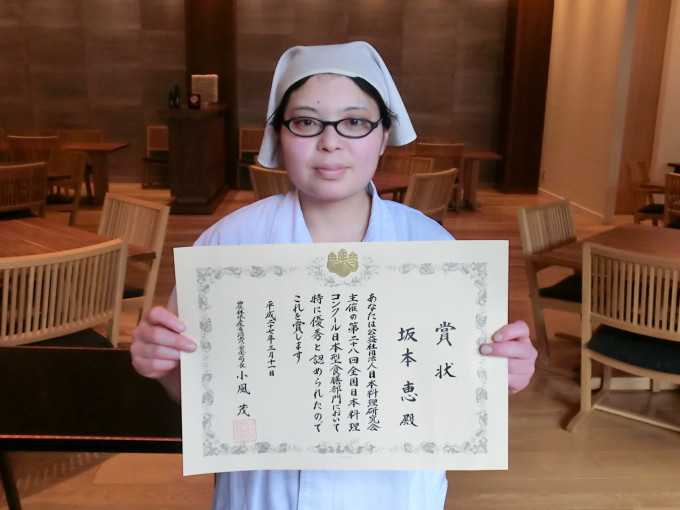 賞状
坂本 恵 殿
あなたは公益社団法人日本料理研究会
主催の第二十八回全国日本料理
コンクール日本型食膳部門において
特に優秀と認められたので
これを賞します
平成二十七年三月十一日
農林水産省食料産業局長 小風 茂